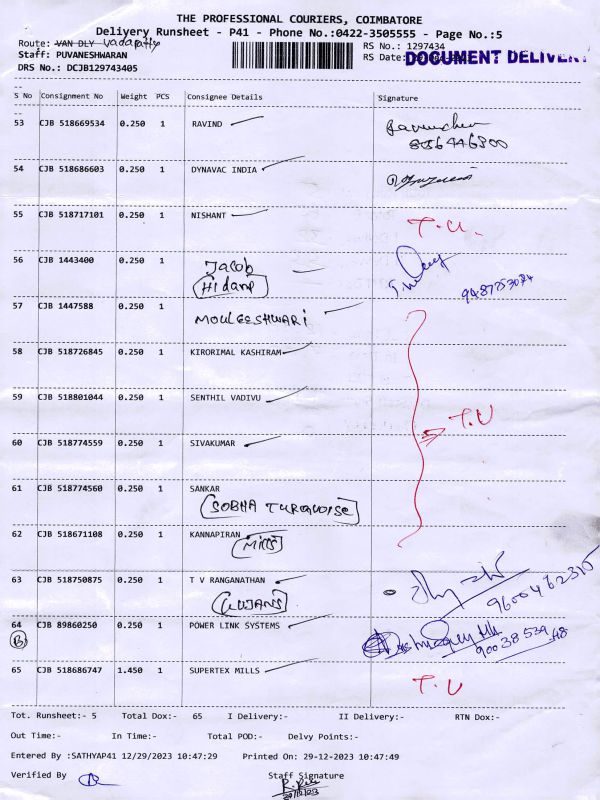 THE PROFESSIONAL COURIERS, COIMBATORE
Delivery Runsheet - P41 - Phone No.:0422-3505555 - Page No.:5
Route: VAN DLY Vadapatty
RS No.: 1297434
Staff: PUVANESHWARAN
RS Date:
DOCUMENT DELIVERY
DRS No.: DCJB129743405
S No Consignment No Weight PCS Consignee Details Signature
53 CJB 518669534 0.250 1 RAVIND
54 CJB 518686603 0.250 1 DYNAVAC INDIA
55 CJB 518717101 0.250 1 NISHANT T.U.
56 CJB 1443400 0.250 1 Jacob
Hidane
57 CJB 1447588 0.250 1 MOULEESHWARI
58 CJB 518726845 0.250 1 KIRORIMAL KASHIRAM
59 CJB 518801044 0.250 1 SENTHIL VADIVU T.U
60 CJB 518774559 0.250 1 SIVAKUMAR
61 CJB 518774560 0.250 1 SANKAR
SOBHA TURQUOISE
62 CJB 518671108 0.250 1 KANNAPIRAN
MILLS
63 CJB 518750875 0.250 1 T V RANGANATHAN
9600462315
64 CJB 89860250 0.250 1 POWER LINK SYSTEMS
B
65 CJB 518686747 1.450 1 SUPERTEX MILLS T.U
Tot. Runsheet:- 5 Total Dox:- 65 I Delivery:- II Delivery:- RTN Dox:-
Out Time:- In Time:- Total POD:- Delvy Points:-
Entered By :SATHYAP41 12/29/2023 10:47:29 Printed On: 29-12-2023 10:47:49
Verified By Staff Signature
29/12/23